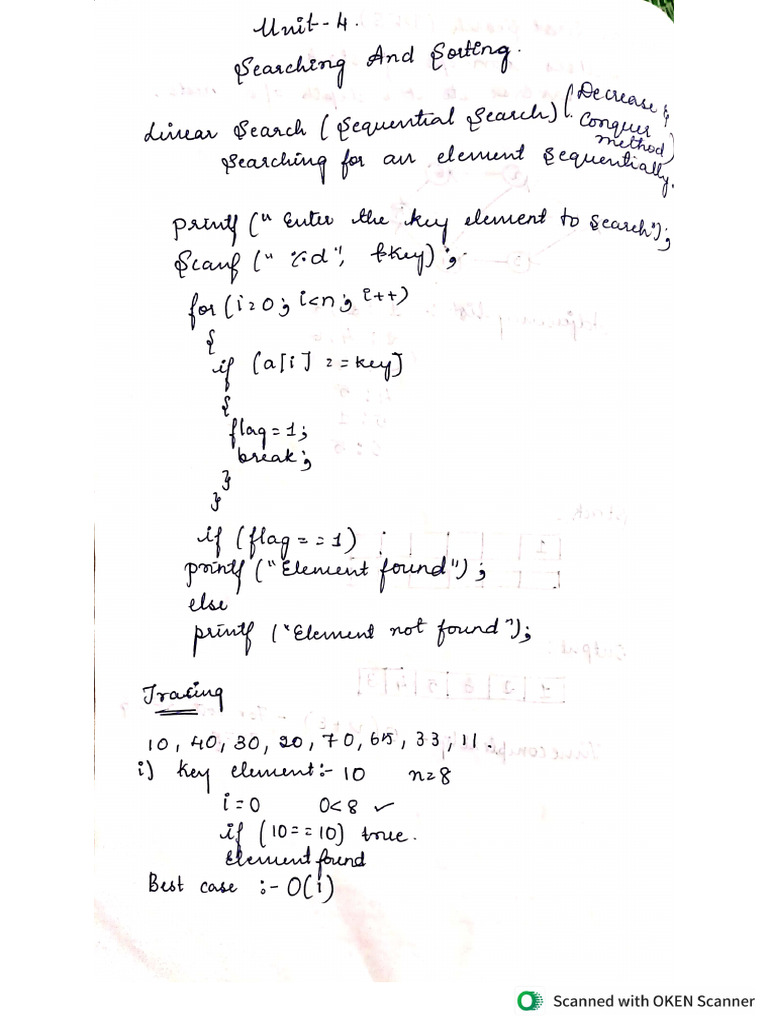 Unit-4.
Searching And Sorting.
Linear Search (Sequential Search) (Decrease & Conquer method)
Searching for an element sequentially.
printf (" Enter the key element to search");
Scanf (" %d", &key);
for (i=0; i<n; i++)
{
if (a[i] == key]
{
flag=1;
break;
}
}
if (flag == 1)
printf ("Element found");
else
printf ("Element not found");
Tracing
10, 40, 30, 20, 70, 65, 33, 11.
i) Key element:- 10 n=8
i=0 0<8 ✓
if (10==10) true.
Element found
Best case :- O(1)
Scanned with OKEN Scanner